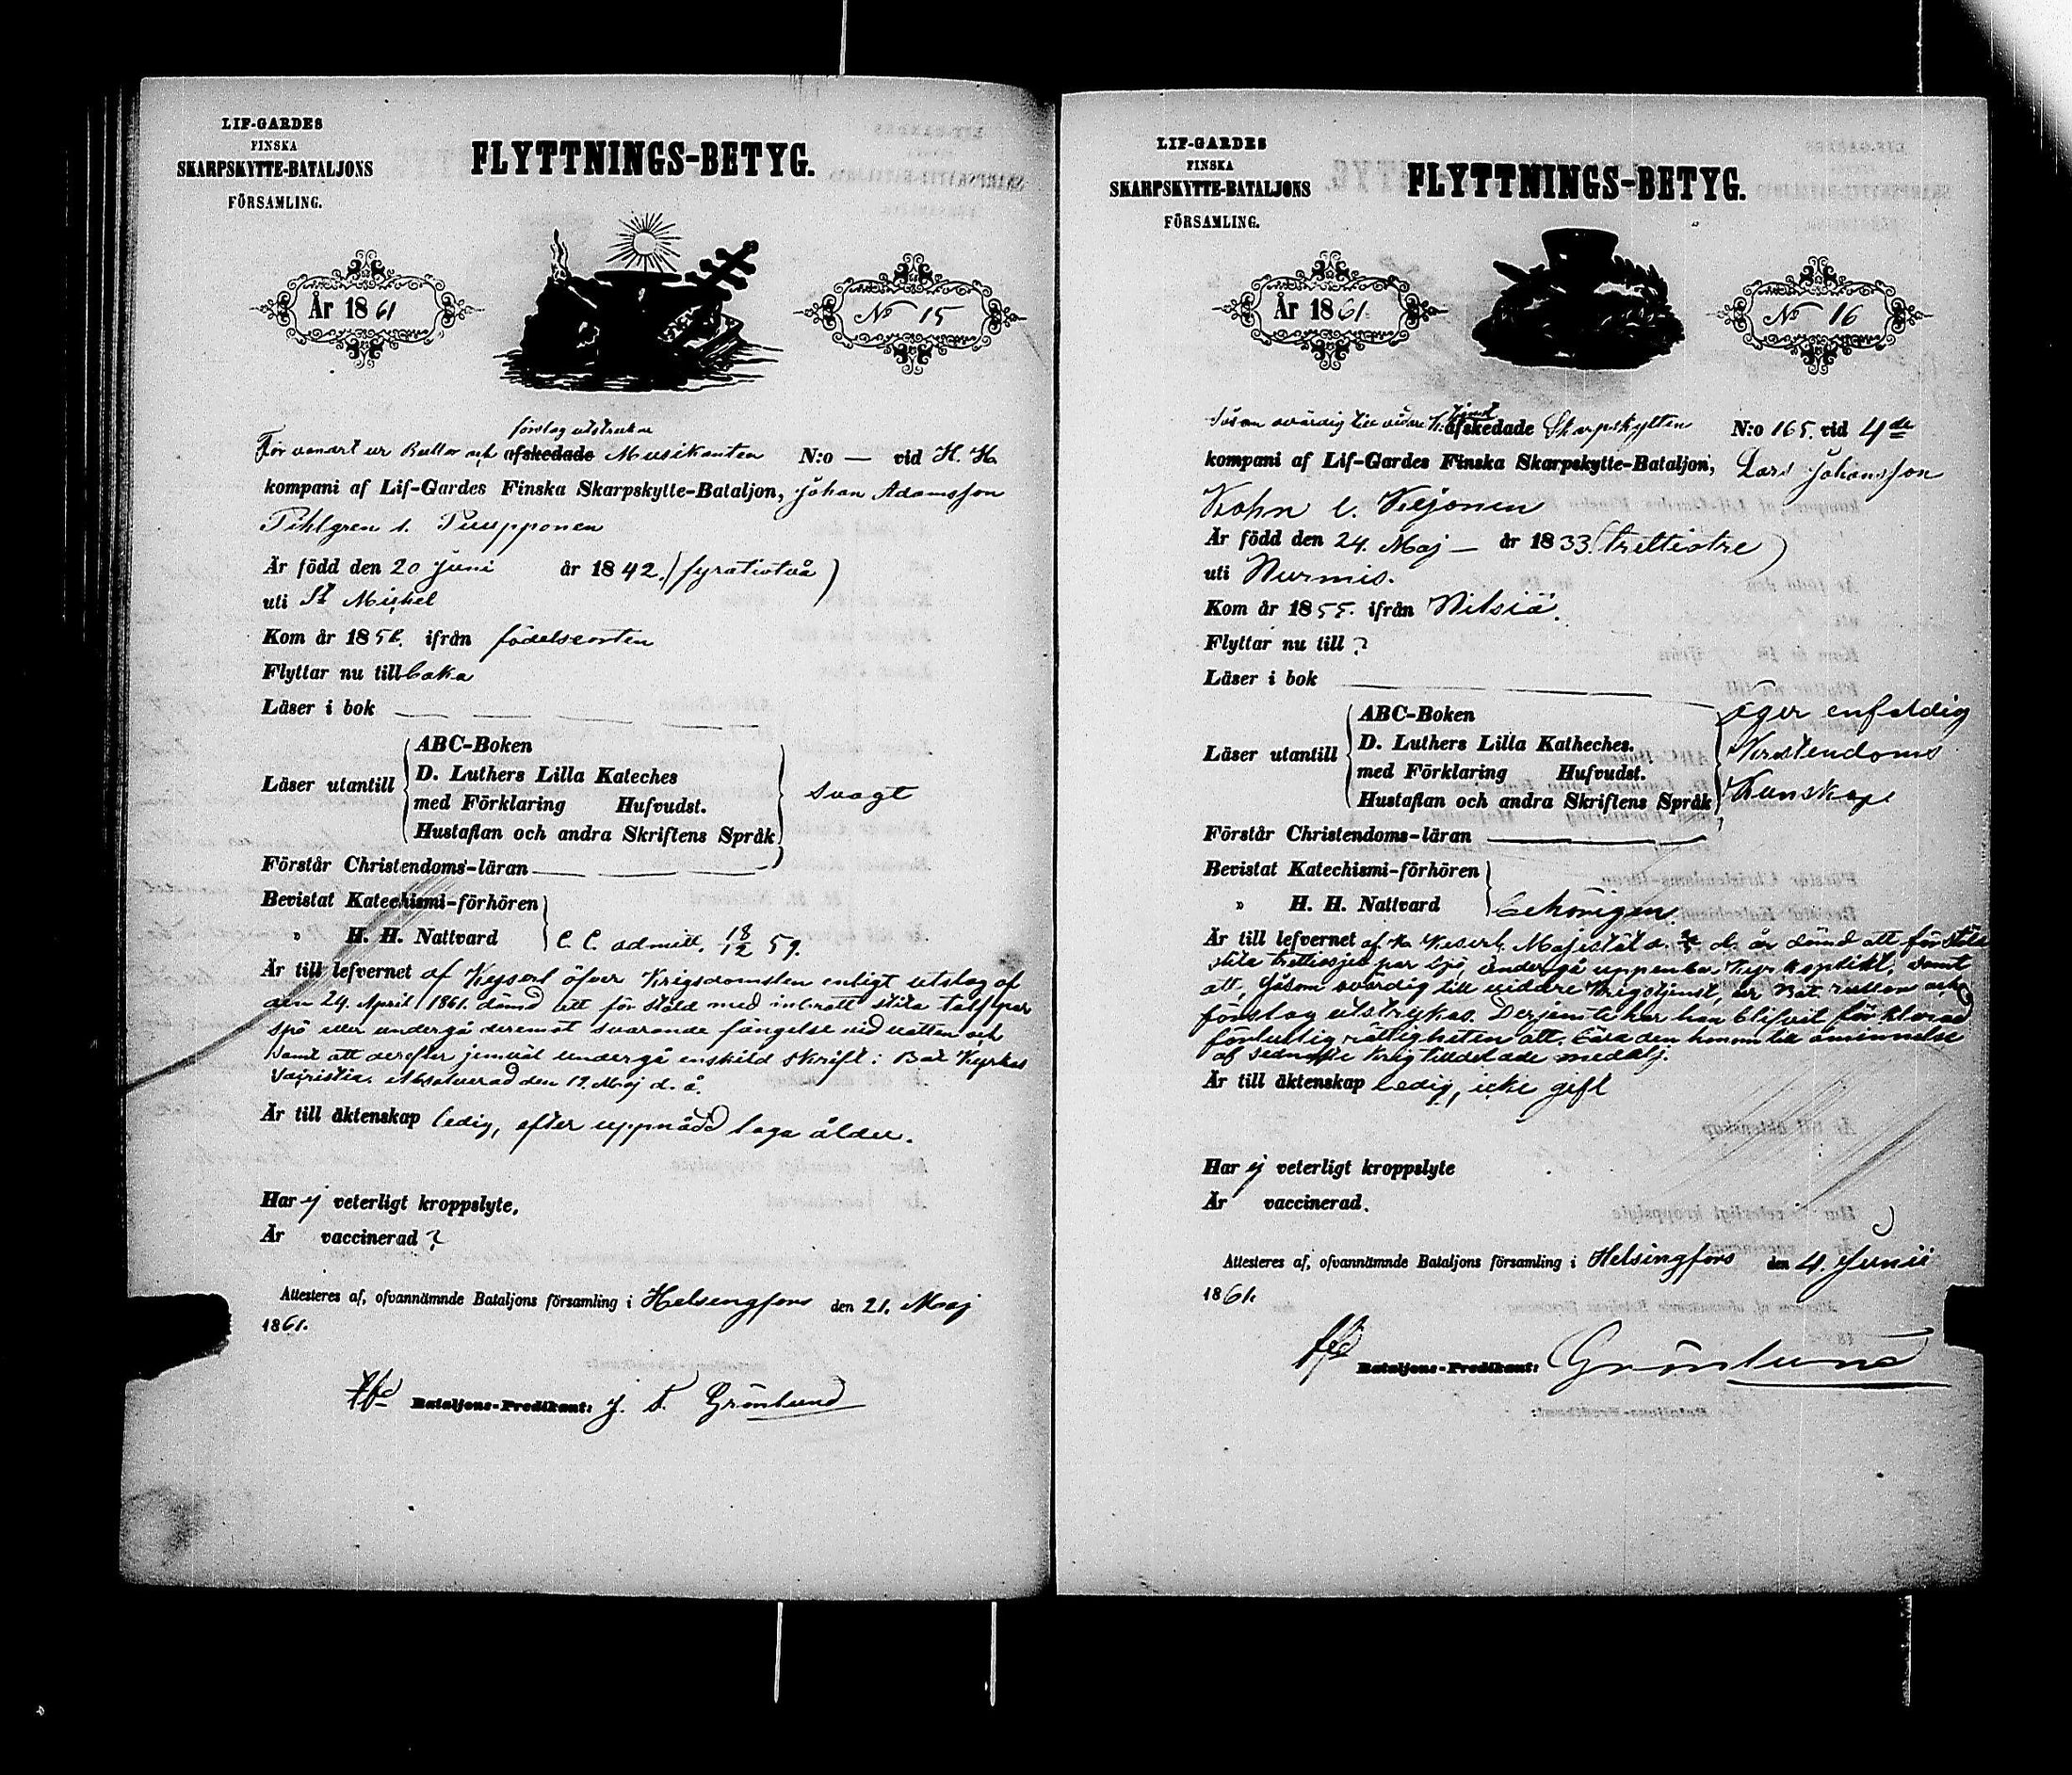 LIF-GARDES
FINSKA
SKARPSKYTTE-BATALJONS
FÖRSAMLING.
FLYTTNINGS-BETYG.
År 1861
No 15
förslag utstruken
För vanart ur Rullor och afskedade Musikanten N:o — vid H. H.
kompani af Lif-Gardes Finska Skarpskytte-Bataljon, Johan Adamsson
Pihlgren l. Pumpponen
Är född den 20 Juni år 1842. (fyratiotvå)
uti St Michel
Kom år 185 ifrån födelseorten
Flyttar nu tillbaka
Läser i bok
Läser utantill
ABC-Boken
D. Luthers Lilla Kateches
med Förklaring Hufvudst.
Hustaflan och andra Skriftens Språk
svagt
Förstår Christendoms-läran
Bevistat Katechismi-förhören
» H. H. Nattvard
C. C. admitt. 18/12 59.
Är till lefvernet af Kejserl öfver Krigsdomsten enligt utslag af
den 24. April 1861. dömd att för stöld med inbrott slita tolf par
spö eller undergå deremot svarande fängelse vid vatten och
samt att derefter jemväl undergå enskild skrift i Bat Kyrkas
Sacristia. Absolverad den 19. Maj d. å.
Är till äktenskap ledig, efter uppnådd laga ålder.
Har ej veterligt kroppslyte,
Är vaccinerad ?
Attesteres af, ofvannämnde Bataljons församling i Helsingfors den 21. Maj
1861.
Bataljons-Predikant: J. F. Grönlund
LIF-GARDES
FINSKA
SKARPSKYTTE-BATALJONS
FÖRSAMLING.
FLYTTNINGS-BETYG.
År 1861.
No 16
Såsom ovärdig till vidare K: tjenst afskedade Skarpskytten N:o 165. vid 4de
kompani af Lif-Gardes Finska Skarpskytte-Bataljon, Lars Johansson
Kohn l. Keijonen
Är född den 24. Maj — år 1833 (trettiotre)
uti Nurmis.
Kom år 1855. ifrån Nilsiä.
Flyttar nu till ?
Läser i bok
Läser utantill
ABC-Boken
D. Luthers Lilla Katheches.
med Förklaring Hufvudst.
Hustaflan och andra Skriftens Språk
äger enfaldig
Kristendoms
Kunskap
Förstår Christendoms-läran
Bevistat Katechismi-förhören
» H. H. Nattvard
behörigen.
Är till lefvernet af H. Kejserl. Majestät d. d. år dömd att för stöld
slita trettiosju par spö, undergå uppenbar Kyrkoplikt, samt
att, såsom ovärdig till vidare Krigstjenst, ur Bat. rullor och
förslag utstrykas. Derjemte har han blifvit förklarad
förlustig rättigheten att bära den honom till åminnelse
af sednaste krig tilldelade medalj.
Är till äktenskap ledig, icke gift
Har ej veterligt kroppslyte
Är vaccinerad.
Attesteres af, ofvannämnde Bataljons församling i Helsingfors den 4. Junii
1861.
Bataljons-Predikant: Grönlund